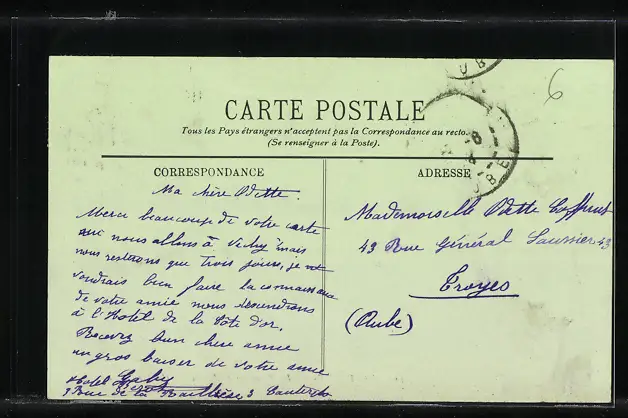 6
CARTE POSTALE
Tous les Pays étrangers n'acceptent pas la Correspondance au recto.
(Se renseigner à la Poste).
CORRESPONDANCE
Ma chère Odette.
Merci beaucoup de votre carte
nous allons à Vichy mais
nous resterons que trois jours, je
voudrais bien faire la connaissance
de votre amie nous descendrons
à l'Hotel de la Côte d'or.
Recevez bien chère amie
un gros baiser de votre amie
Gaby
Hotel
9 Rue de la Raillère 9 Cauterets
ADRESSE
Mademoiselle Odette
43 Rue Général Saussier 43
Troyes
(Aube)